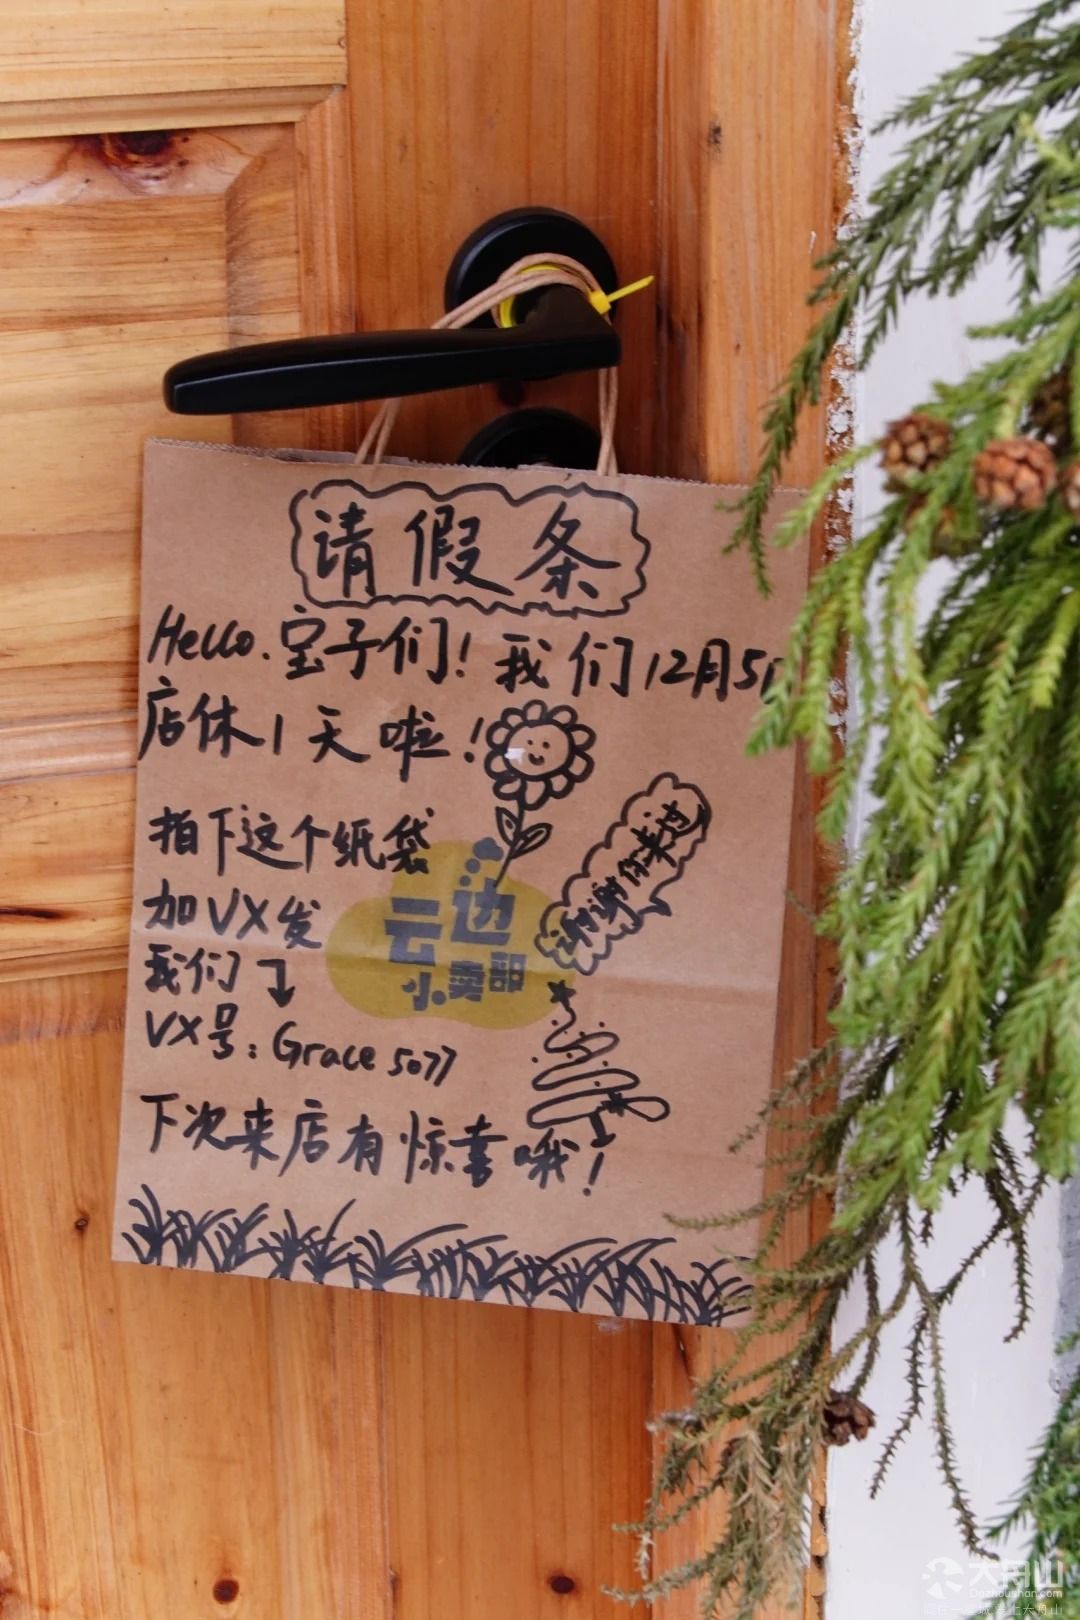 请假条
Hello.宝子们!我们12月5日
店休1天啦!
拍下这个纸袋
加VX发
我们
VX号:Grace5077
下次来店有惊喜哦!
谢谢你来过
云边
小卖部
大舟山
Dazhoushan.com